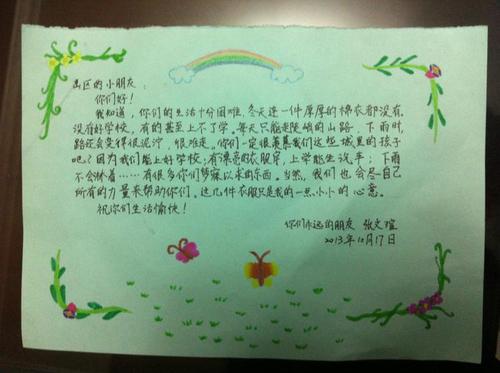 山区的小朋友：
你们好！
我知道，你们的生活十分困难，冬天连一件厚厚的棉衣都没有，
没有好学校，有的甚至上不了学。每天只能走陡峭的山路，下雨时，
路还会变得很泥泞，很难走。你们一定很羡慕我们这些城里的孩子
吧？因为我们能上好学校；有漂亮的衣服穿，上学能坐汽车；下雨
不会淋着……有很多你们梦寐以求的东西。当然，我们也会尽自己
所有的力量来帮助你们，这几件衣服只是我的一点小小的心意。
祝你们生活愉快！
你们永远的朋友 张文瑄
2013年10月17日